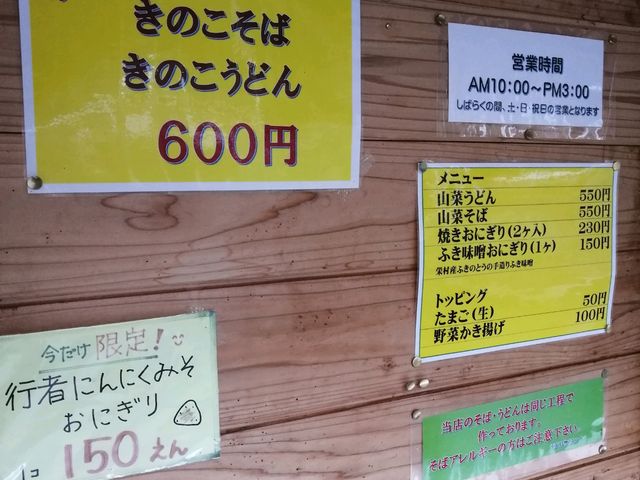 きのこそば
きのこうどん
600円
営業時間
AM10:00~PM3:00
しばらくの間、土・日・祝日の営業となります
メニュー
山菜うどん 550円
山菜そば 550円
焼きおにぎり(2ヶ入) 230円
ふき味噌おにぎり(1ヶ) 150円
栄村産ふきのとうの手造りふき味噌
トッピング
たまご(生) 50円
野菜かき揚げ 100円
今だけ限定!
行者にんにくみそ
おにぎり
1コ 150えん
当店のそば・うどんは同じ工程で
作っております。
そばアレルギーの方はご注意下さい